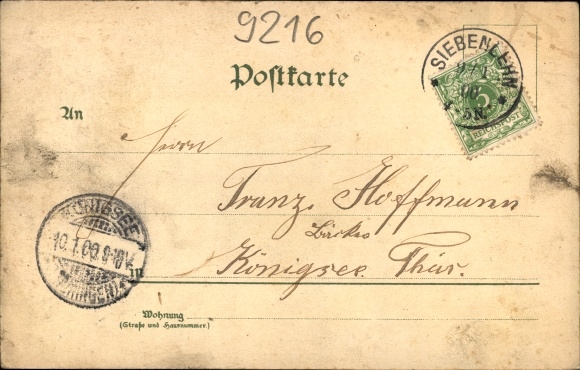 9216
SIEBENLEHN
9/1
00
4-5N.
5
REICHSPOST
Postkarte
An
Herrn
Franz Hoffmann
Königsee Thür.
KÖNIGSEE
10.1.00.9-10V.
in
Wohnung
(Straße und Hausnummer.)